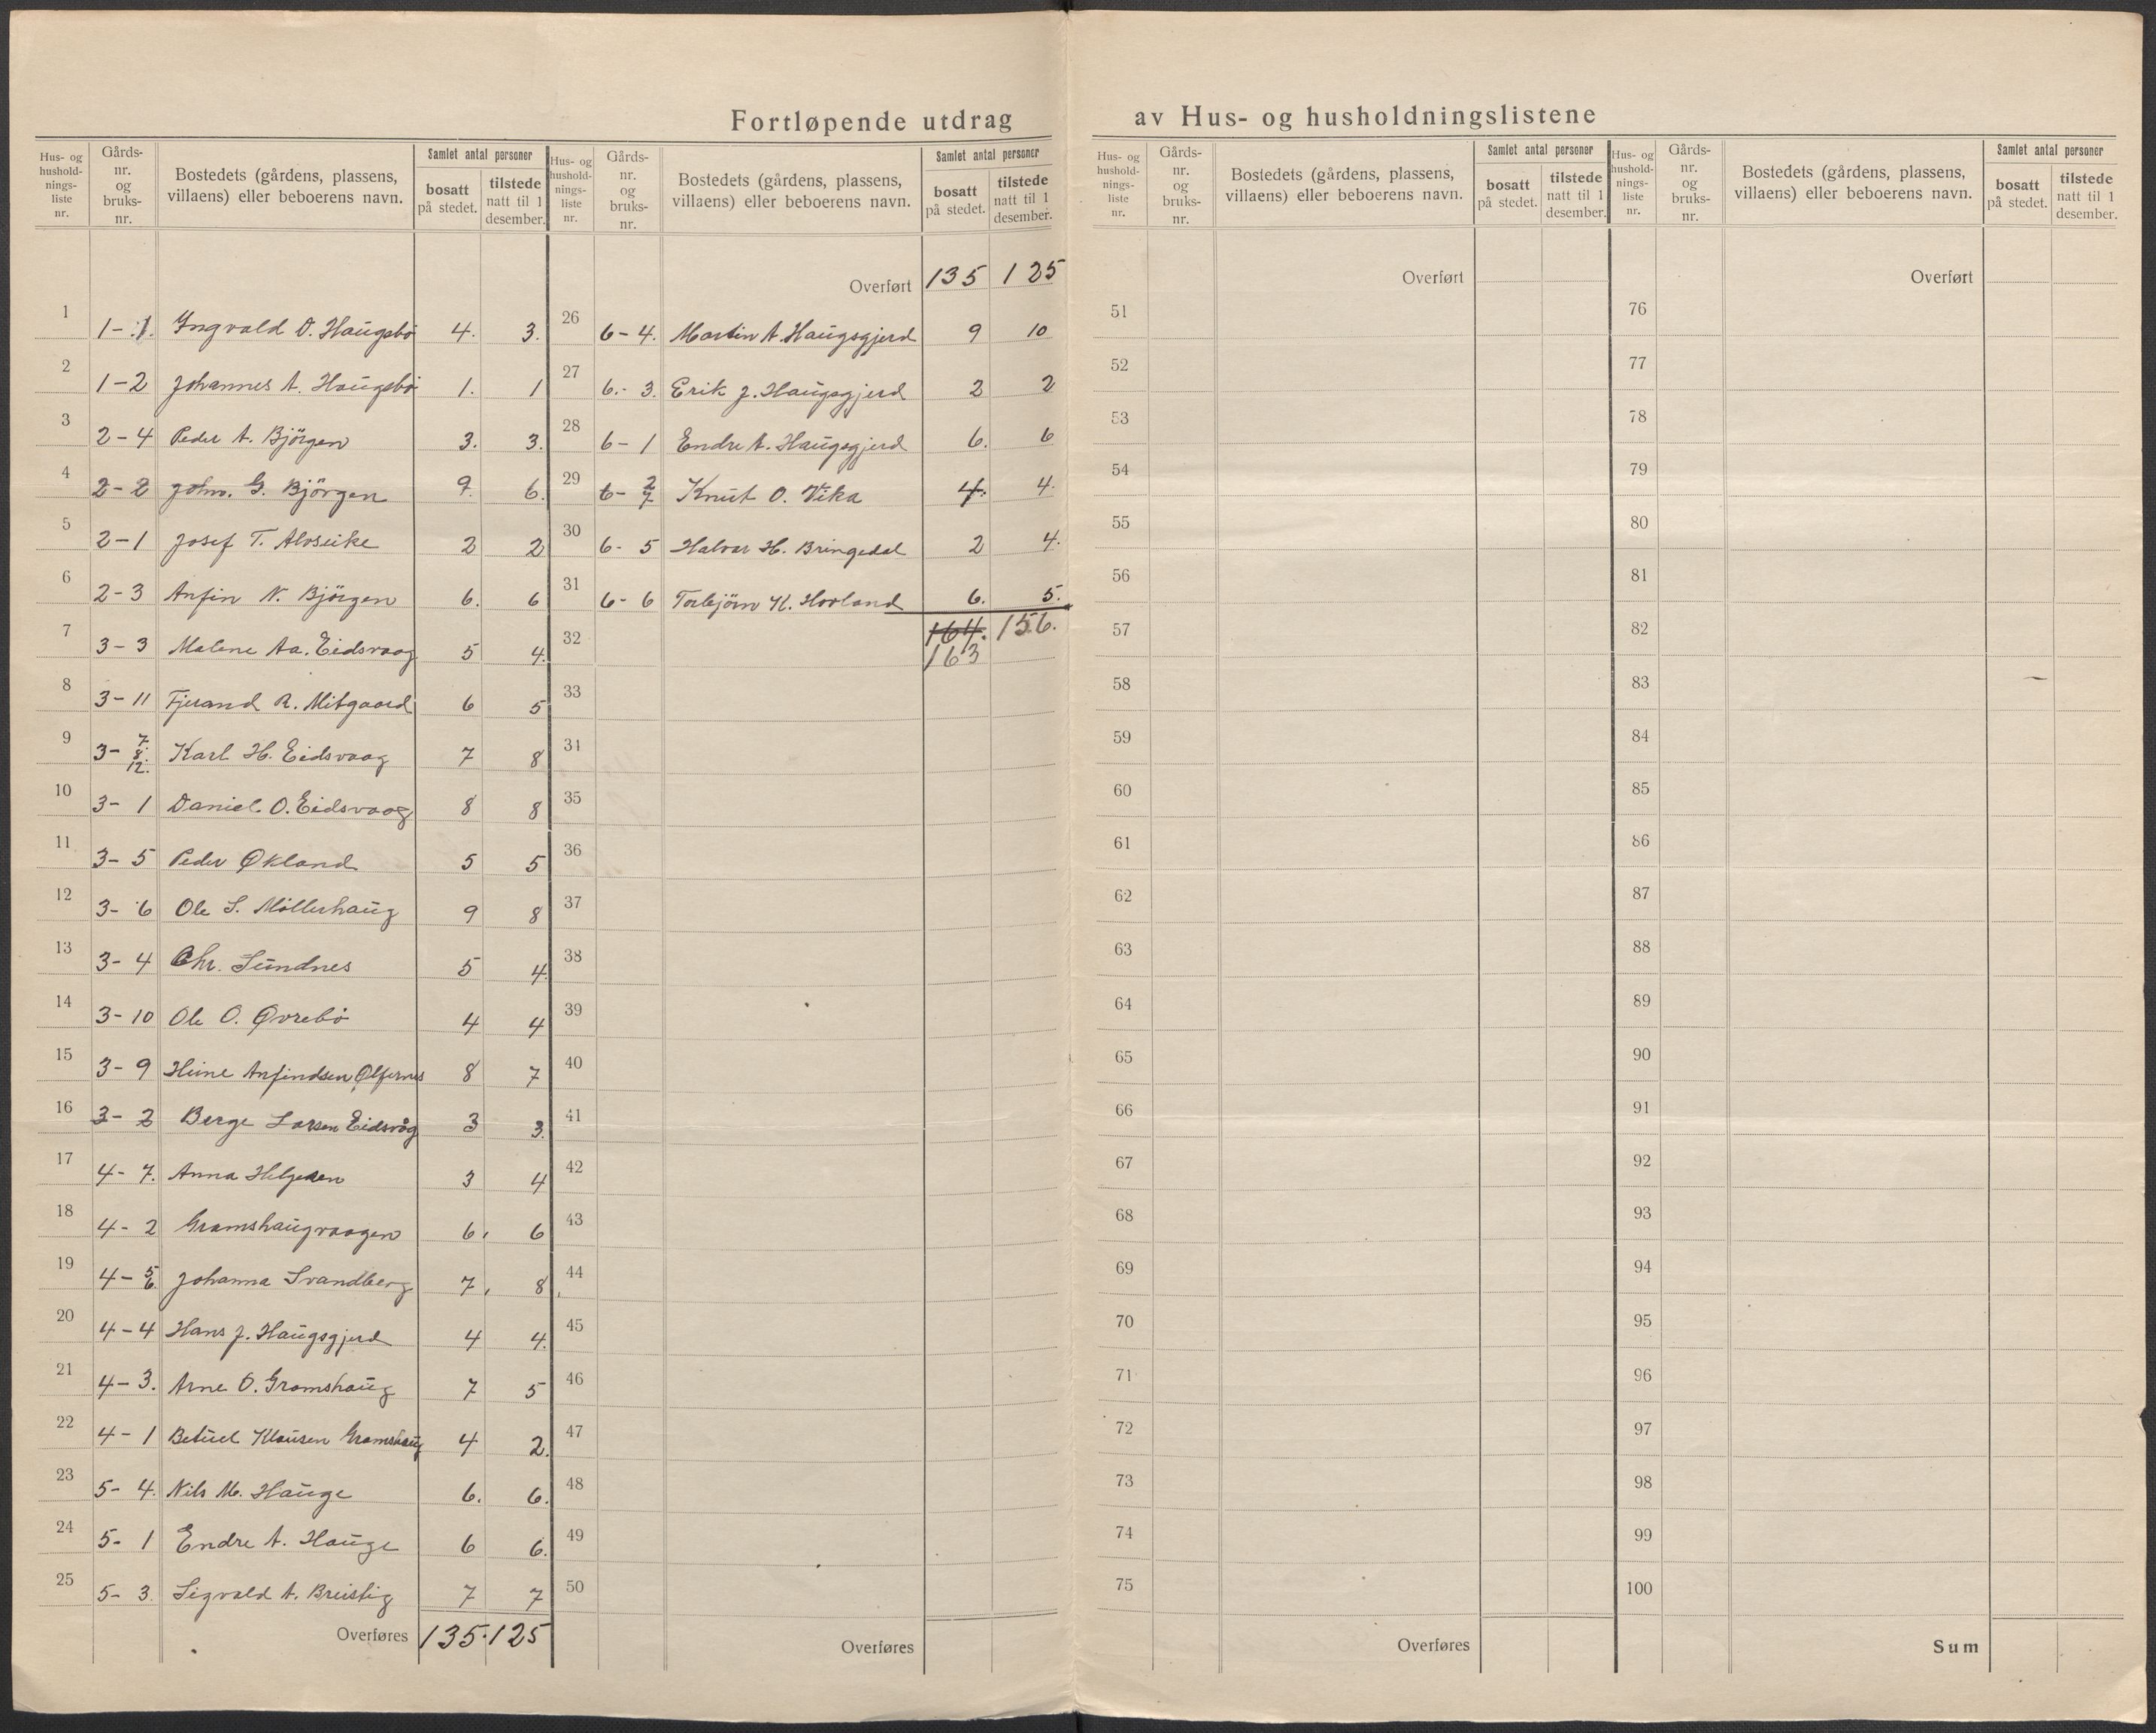 Fortløpende utdrag av Hus- og husholdningslistene
Hus- og hushold-nings-liste nr. Gårds-nr. og bruks-nr. Bostedets (gårdens, plassens, villaens) eller beboerens navn. Samlet antal personer bosatt på stedet. tilstede natt til 1 desember.
Hus- og hushold-nings-liste nr. Gårds-nr. og bruks-nr. Bostedets (gårdens, plassens, villaens) eller beboerens navn. Samlet antal personer bosatt på stedet. tilstede natt til 1 desember.
Hus- og hushold-nings-liste nr. Gårds-nr. og bruks-nr. Bostedets (gårdens, plassens, villaens) eller beboerens navn. Samlet antal personer bosatt på stedet. tilstede natt til 1 desember.
Hus- og hushold-nings-liste nr. Gårds-nr. og bruks-nr. Bostedets (gårdens, plassens, villaens) eller beboerens navn. Samlet antal personer bosatt på stedet. tilstede natt til 1 desember.
1 1-1. Yngvald O. Haugsbø 4. 3.
2 1-2 Johannes A. Haugsbø 1. 1
3 2-4 Peder A. Björgen 3. 3.
4 2-2 John. G. Björgen 9. 6.
5 2-1 Josef T. Alvseike 2 2
6 2-3 Anfin N. Björgen 6. 6
7 3-3 Malene Aa. Eidsvaag 5 4.
8 3-11 Fjerand R. Mitgaard 6 5
9 3- 7. 8. 12. Karl H. Eidsvaag 7 8
10 3-1 Daniel O. Eidsvaag 8 8
11 3-5 Peder Økland 5 5
12 3-6 Ole S. Möllerhaug 9 8
13 3-4 Chr. Sundnes 5 4.
14 3-10 Ole O. Øvrebö 4 4
15 3-9 Heine Anfindsen Ølfernes 8 7
16 3-2 Berge Larsen Eidsvåg 3 3.
17 4-7. Anna Helgesen 3 4
18 4-2 Gramshaugvaagen 6, 6
19 4- 5 6. Johanna Svandberg 7, 8
20 4-4 Hans J. Haugsgjerd 4 4.
21 4-3. Arne O. Gramshaug 7 5
22 4-1 Betuel Klausen Gramshaug 4 2.
23 5-4. Nils M. Hauge 6. 6.
24 5-1 Endre A. Hauge 6 6.
25 5-3. Sigvald A. Breistig 7 7
Overføres 135. 125
Overført 135 125
26 6-4. Martin A. Haugsgjerd 9 10
27 6.-3. Erik J. Haugsgjerd 2 2
28 6-1 Endre A. Haugsgjerd 6. 6
29 6- 2 7 Knut O. Vika 4. 4.
30 6-5 Halvar H. Bringedal 2 4.
31 6-6 Torbjörn K. Hovland 6. 5.
32 164. 156.
163
33
34
35
36
37
38
39
40
41
42
43
44
45
46
47
48
49
50
Overføres
Overført
51
52
53
54
55
56
57
58
59
60
61
62
63
64
65
66
67
68
69
70
71
72
73
74
75
Overføres
Overført
76
77
78
79
80
81
82
83
84
85
86
87
88
89
90
91
92
93
94
95
96
97
98
99
100
Sum